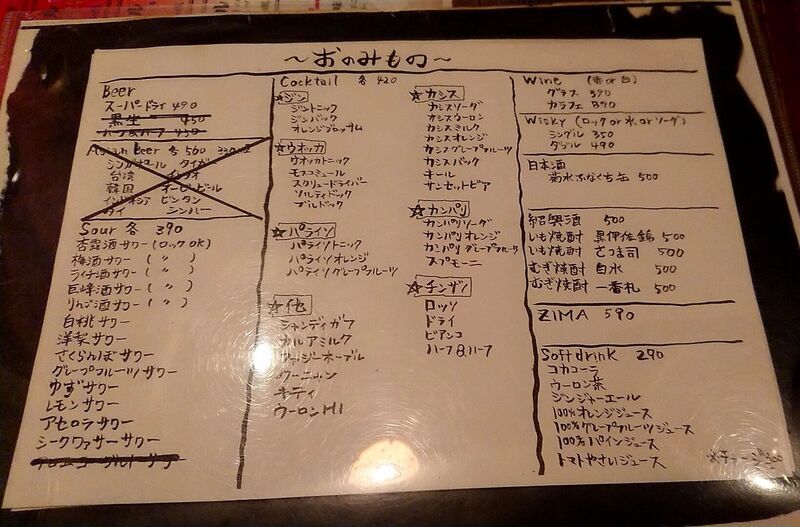 ～おのみもの～
Beer
スーパードライ 490
黒生 450
ハーフ&ハーフ 450
Asian beer 各 560 330ml
シンガポール タイガー
台湾
韓国 オービービール
インドネシア ビンタン
タイ シンハー
Sour 各 390
杏露酒サワー(ロックOK)
梅酒サワー ( 〃 )
ライチ酒サワー ( 〃 )
巨峰酒サワー ( 〃 )
りんご酒サワー ( 〃 )
白桃サワー
洋梨サワー
さくらんぼサワー
グレープフルーツサワー
ゆずサワー
レモンサワー
アセロラサワー
シークワァサーサワー
Cocktail 各 420
☆ジン
ジントニック
ジンバック
オレンジブロッサム
☆ウオッカ
ウオッカトニック
モスコミュール
スクリュードライバー
ソルティドック
ブルドック
☆パライソ
パライソトニック
パライソオレンジ
パライソグレープフルーツ
☆他
シャンディガフ
カルアミルク
ファジーネーブル
クーニャン
キティ
ウーロンHI
☆カシス
カシスソーダ
カシスウーロン
カシスミルク
カシスオレンジ
カシスグレープフルーツ
カシスバック
キール
サンセットビア
☆カンパリ
カンパリソーダ
カンパリオレンジ
カンパリグレープフルーツ
スプモーニ
☆チンザノ
ロッソ
ドライ
ビアンコ
ハーフ&ハーフ
Wine (赤or白)
グラス 390
カラフェ 890
Wisky (ロックor水orソーダ)
シングル 350
ダブル 490
日本酒
菊水ふなぐち缶 500
紹興酒 500
いも焼酎 黒伊佐錦 500
いも焼酎 さつま司 500
むぎ焼酎 白水 500
むぎ焼酎 一番札 500
ZIMA 590
Soft drink 290
コカコーラ
ウーロン茶
ジンジャーエール
100%オレンジジュース
100%グレープフルーツジュース
100%パインジュース
トマトやさいジュース
※チャージ 300